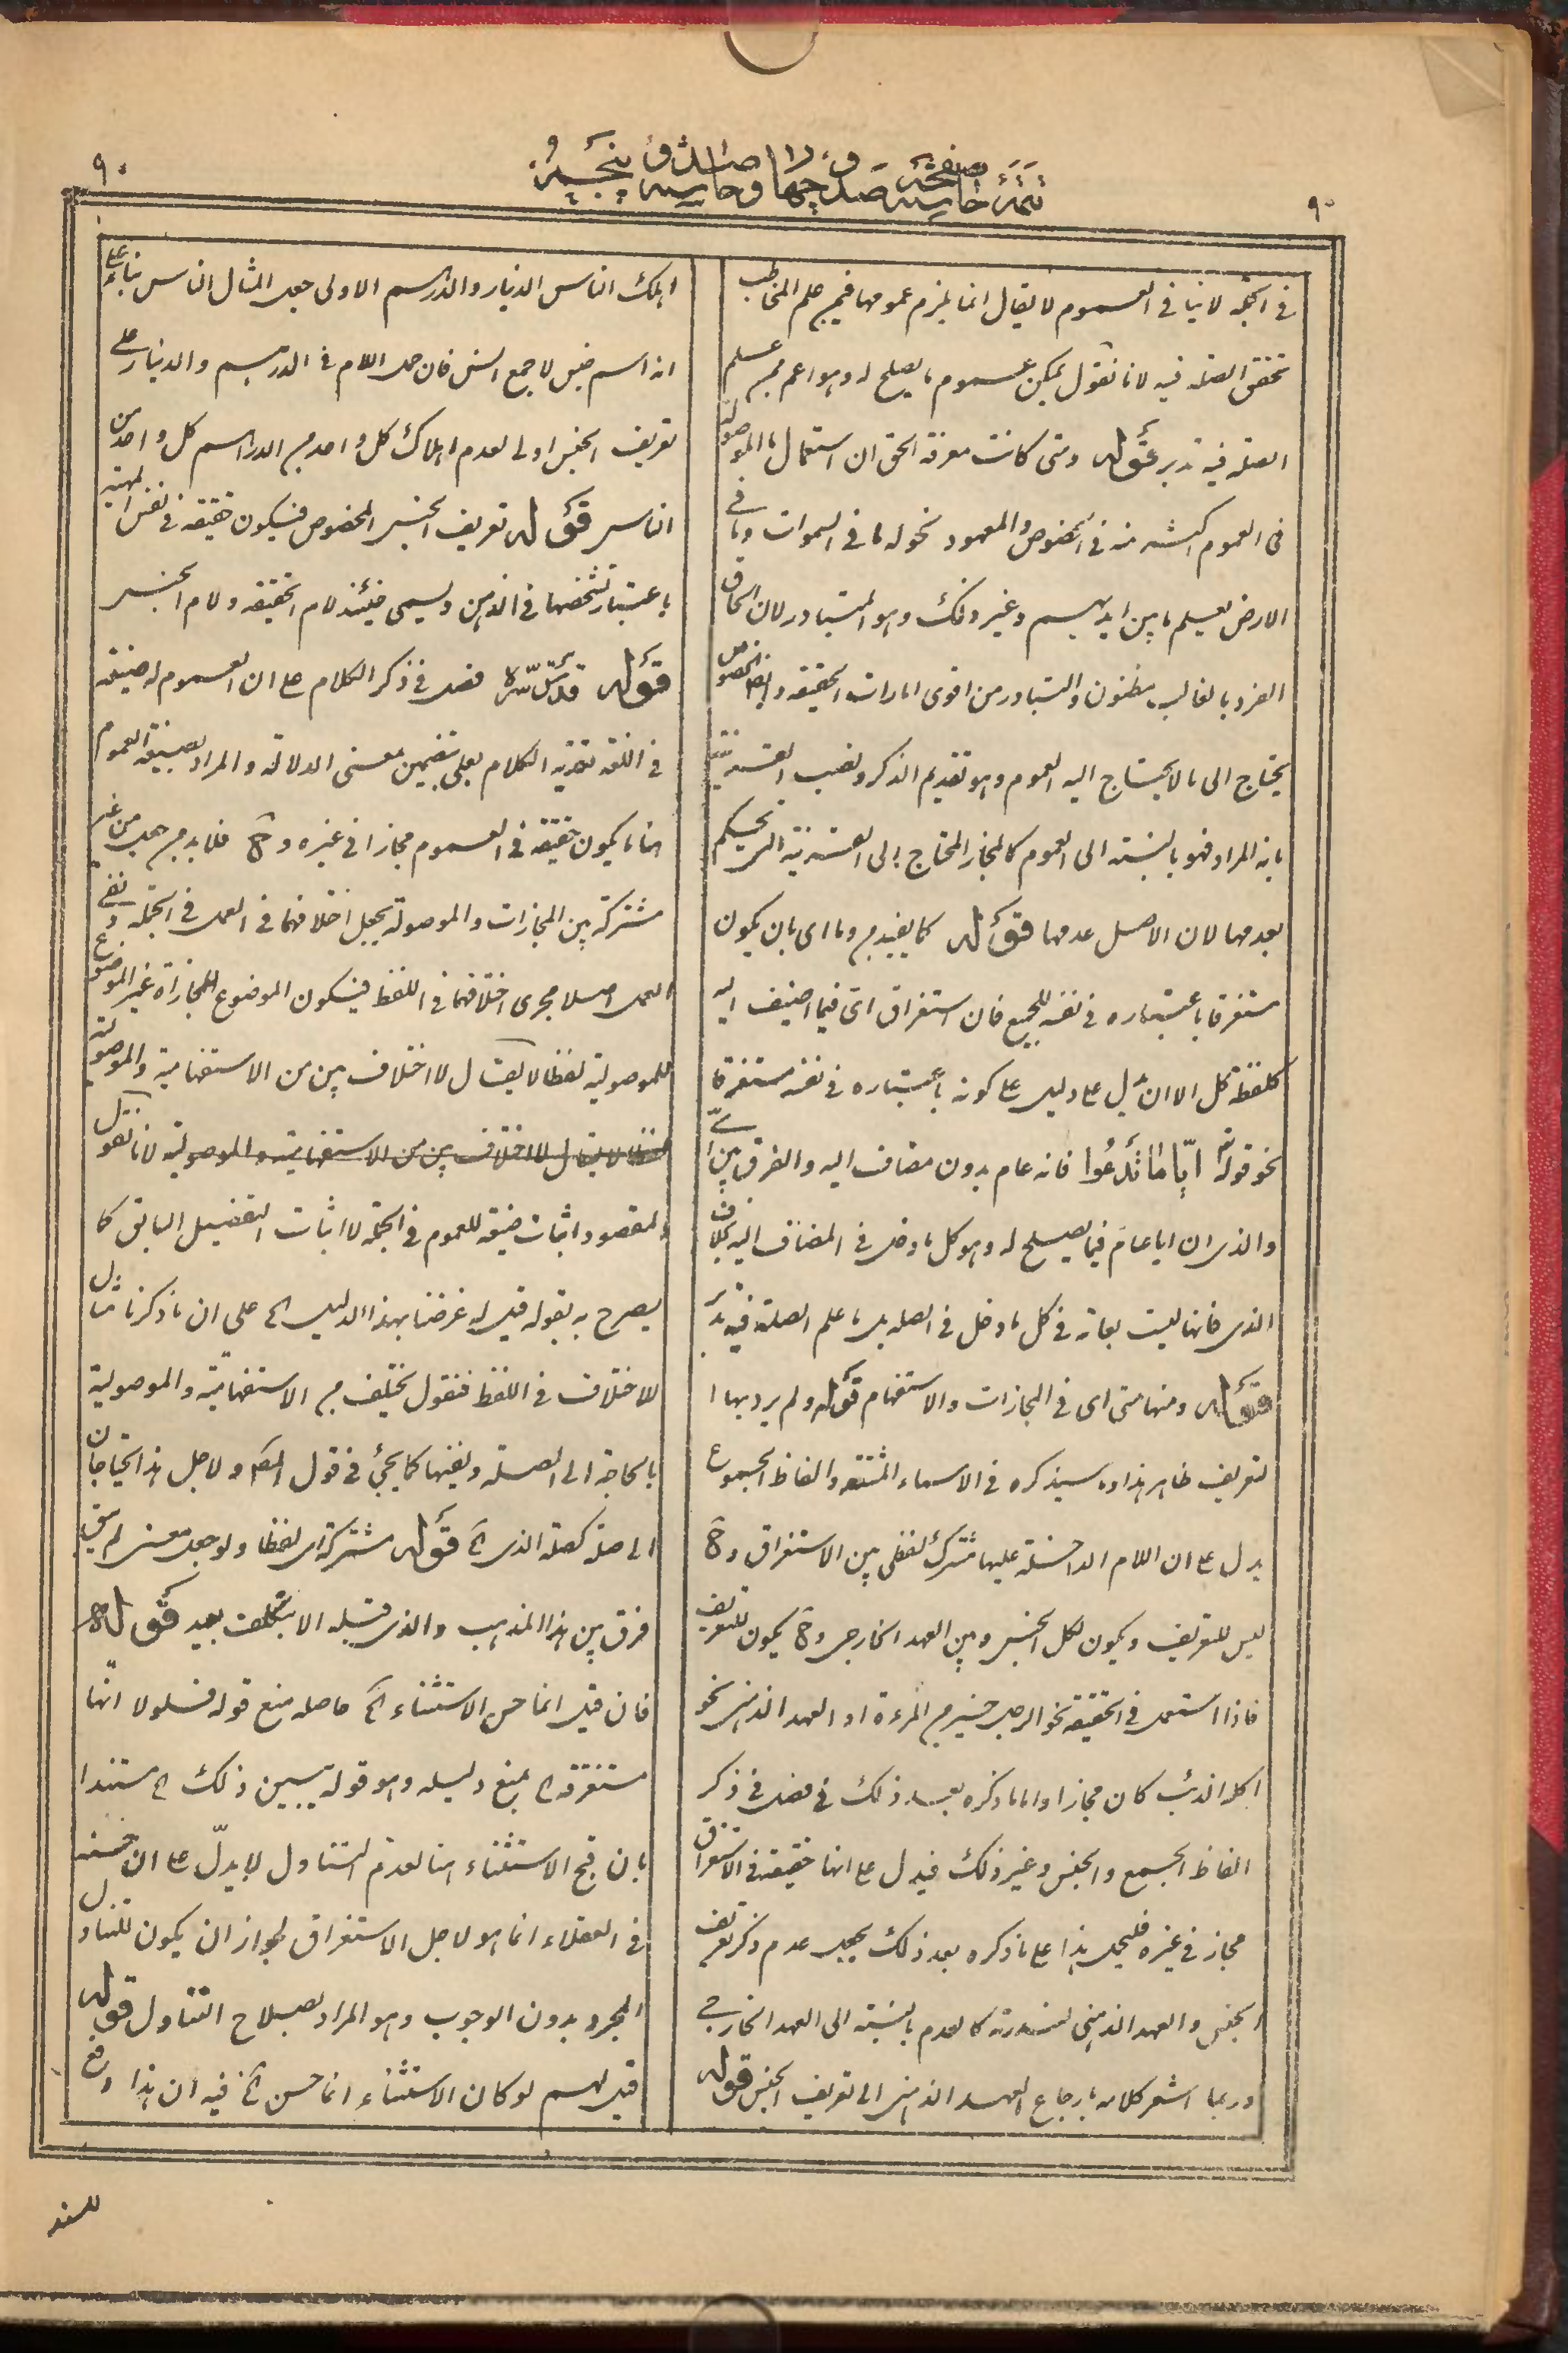 ٩٠
تتمة حاشية صفحة صد و چهار و حاشية صد و پنجست
٩٠
في الجملة لا ينافي العموم لا يقال انما يلزم عمومها فيمن علم المخاطب
تحقق الصلة فيه لانا نقول يمكن عموم ما يصلح له وهو اعم ممن علم
الصلة فيه تدبر قوله ومتى كانت معرفة الحق ان استعمال ما الموصولة
في العموم اكثر منه في الخصوص والمعهود نحو له ما في السموات وما في
الارض يعلم ما بين ايديهم وغير ذلك وهو المتبادر لان الحاق
الفرد بالغالب مظنون والتبادر من اقوى امارات الحقيقة وايضا الخصوص
يحتاج الى ما لا يحتاج اليه العموم وهو تقديم الذكر ونصب القرينة
بانه المراد فهو بالنسبة الى العموم كالمجاز المحتاج الى القرينة التي يحكم
بعدمها لان الاصل عدمها قوله كما يفيد من وما اي بان يكون
مستغرقا باعتباره في نفسه للجميع فان استغراق اي فيما اضيف اليه
كلفظة كل الا ان يدل على دليل على كونه باعتباره في نفسه مستغرقا
نحو قوله تع ايّا ما تدعوا فانه عام بدون مضاف اليه والفرق بين اي
والذي ان ايا عام فيما يصلح له وهو كل ما دخل في المضاف اليه بخلاف
الذي فانها ليست بعامة في كل ما دخل في الصلة بل ما علم الصلة فيه تدبر
قوله ومنها متى اي في المجازات والاستفهام قوله ولم يرد بهما
التعريف ظاهر هذا وما سيذكره في الاسماء المشتقة والفاظ الجموع
يدل على ان اللام الداخلة عليها مشترك لفظي بين الاستغراق وح
ليس للتعريف ويكون لكل الجنس وبين العهد الخارجي وح يكون للتعريف
فاذا استعمل في الحقيقة نحو الرجل خير من المرءة او العهد الذهني نحو
اكله الذئب كان مجازا واما ما ذكره بعد ذلك في فصل في ذكر
الفاظ الجمع والجنس وغير ذلك فيدل على انها حقيقة في الاستغراق
مجاز في غيره فليحمل هذا على ما ذكره بعد ذلك بجعل عدم ذكر تعريف
الجنس والعهد الذهني لندرته كالعدم بالنسبة الى العهد الخارجي
وربما اشعر كلامه بارجاع العهد الذهني الى تعريف الجنس قوله
اهلك الناس الدينار والدرهم الاولى جعل المثال الناس بناء على
انه اسم جنس لا جمع انس فان حمل اللام في الدرهم والدينار على
تعريف الجنس اولى لعدم اهلاك كل واحد من الدراهم كل واحد من
الناس قوله تعريف الجنس المخصوص فيكون حقيقة في نفس المهية
باعتبار تشخصها في الذهن ويسمى حينئذ لام الحقيقة ولام الجنس
قوله قدس سره فصل في ذكر الكلام على ان العموم له صيغة
في اللغة تعدية الكلام بعلى بتضمين معنى الدلالة والمراد بصيغة العموم
هنا ما يكون حقيقة في العموم مجازا في غيره وح فلا بد من جعل من غير
مشتركة بين المجازات والموصولة بجعل اختلافهما في العمل في الجملة ونفي
العمل اصلا مجرى اختلافهما في اللفظ فيكون الموضوع للمجازاة غير الموضوع
للموصولية لفظا لا يقال لا اختلاف بين من الاستفهامية والموصولة
لفظا لا يقال لا اختلاف بين من الاستفهامية والموصولية لانا نقول
المقصود اثبات صيغة للعموم في الجملة لا اثبات التفصيل السابق كما
يصرح به بقوله قيل له غرضنا بهذا الدليل الخ على ان ما ذكرنا مثال
للاختلاف في اللفظ فنقول يختلف من الاستفهامية والموصولية
بالحاجة الى الصلة ونفيها كما يجئ في قول المص ولاجل هذا احتياجان
الى صلة كصلة الذي الخ قوله مشتركة اي لفظا ولو جعل معنى لم يبق
فرق بين هذا المذهب والذي قبله الا بتكلف بعيد قوله
فان قيل انما حسن الاستثناء الخ حاصله منع قوله فلولا انها
مستغرقة الخ بمنع دليله وهو قوله يبين ذلك الخ مستندا
بان قبح الاستثناء هنا لعدم التناول لا يدلّ على ان حسنه
في العقلاء انما هو لاجل الاستغراق لجواز ان يكون للتناول
المجرد بدون الوجوب وهو المراد بصلاح التناول قوله
قيل لهم لو كان الاستثناء انما حسن الخ فيه ان هذا دفع
للسند